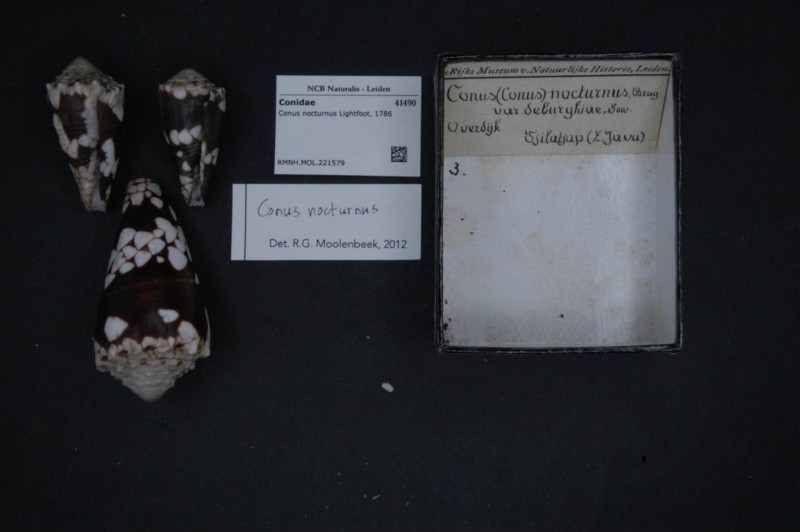 NCB Naturalis - Leiden
Conidae 41490
Conus nocturnus Lightfoot, 1786
RMNH.MOL.221579
Conus nocturnus
Det. R.G. Moolenbeek, 2012
's Rijks Museum v. Natuurlijke Historie, Leiden.
Conus (Conus) nocturnus, Brug
var deburghiae, Sow.
Overdijk
Tjilatjap (Z. Java)
3.